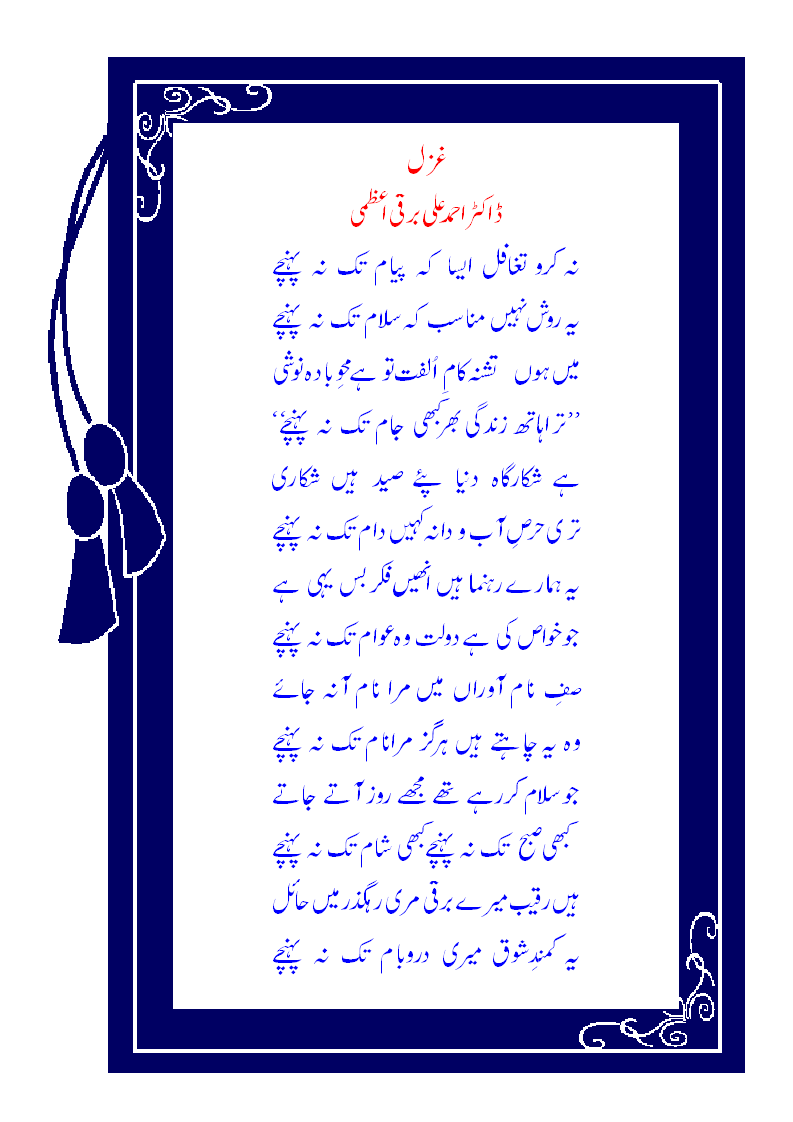 غزل
ڈاکٹر احمد علی برقی اعظمی
نہ کرو تغافل ایسا کہ پیام تک نہ پہنچے
یہ روش نہیں مناسب کہ سلام تک نہ پہنچے
میں ہوں تشنہ کامِ اُلفت تو ہے محوِ بادہ نوشی
”ترا ہاتھ زندگی بھر کبھی جام تک نہ پہنچے“
ہے شکارگاہ دنیا پئے صید ہیں شکاری
تری حرصِ آب و دانہ کہیں دام تک نہ پہنچے
یہ ہمارے رہنما ہیں انھیں فکر بس یہی ہے
جو خواص کی ہے دولت وہ عوام تک نہ پہنچے
صفِ نام آوراں میں مرا نام آ نہ جائے
وہ یہ چاہتے ہیں ہرگز مرا نام تک نہ پہنچے
جو سلام کررہے تھے مجھے روز آتے جاتے
کبھی صبح تک نہ پہنچے کبھی شام تک نہ پہنچے
ہیں رقیب میرے برقی مری رہگذر میں حائل
یہ کمندِ شوق میری دروبام تک نہ پہنچے